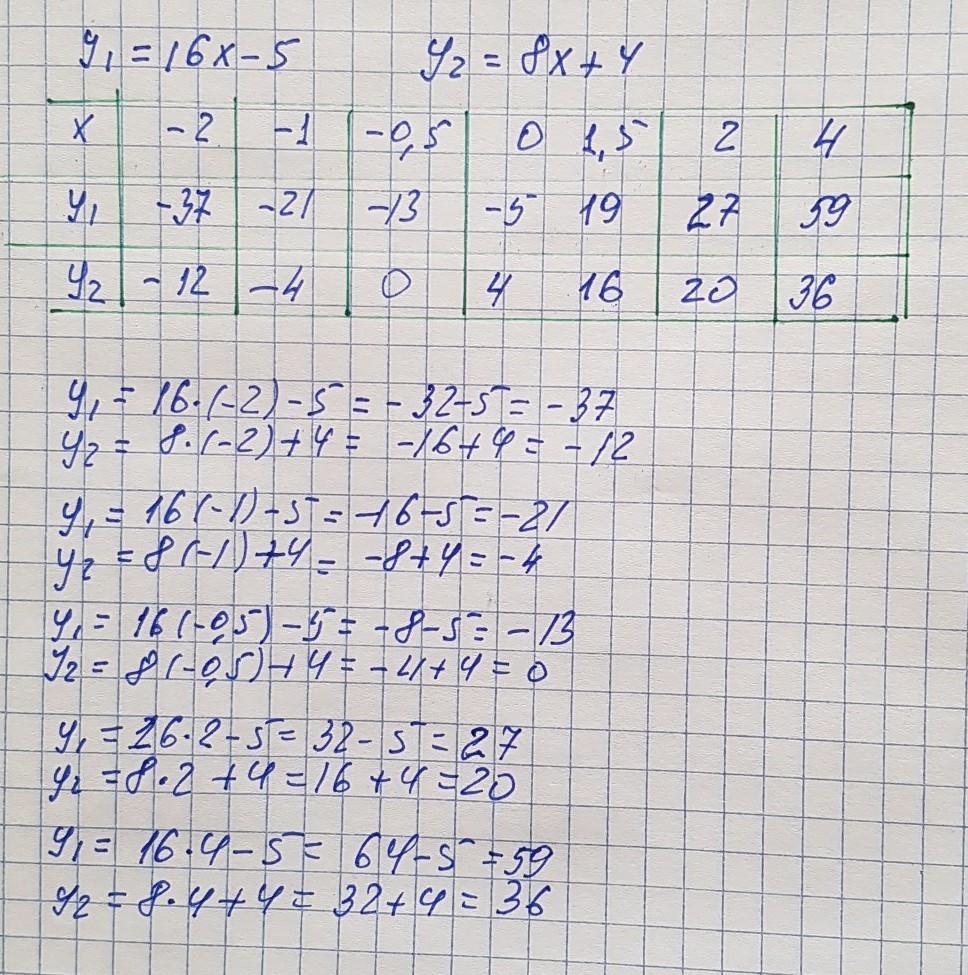 y₁ = 16x - 5 y₂ = 8x + 4
x -2 -1 -0,5 0 1,5 2 4
y₁ -37 -21 -13 -5 19 27 59
y₂ -12 -4 0 4 16 20 36
y₁ = 16·(-2) - 5 = -32-5 = -37
y₂ = 8·(-2)+4 = -16+4 = -12
y₁ = 16(-1)-5 = -16-5 = -21
y₂ = 8(-1)+4 = -8+4 = -4
y₁ = 16(-0,5)-5 = -8-5 = -13
y₂ = 8(-0,5)+4 = -4+4 = 0
y₁ = 16·2-5 = 32-5 = 27
y₂ = 8·2+4 = 16+4 = 20
y₁ = 16·4-5 = 64-5 = 59
y₂ = 8·4+4 = 32+4 = 36